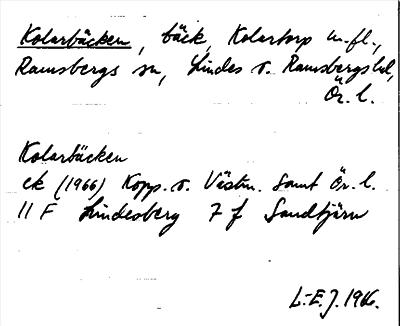 Kolarbäcken, bäck, Kolartorp m.fl.,
Ramsbergs sn, Lindes o. Ramsbergs hd,
Ör. l.
Kolarbäcken
ek (1966) Kopp. o. Västm. samt Ör. l.
11 F Lindesberg 7 f Sandtjärn
L.-E. J. 1966.